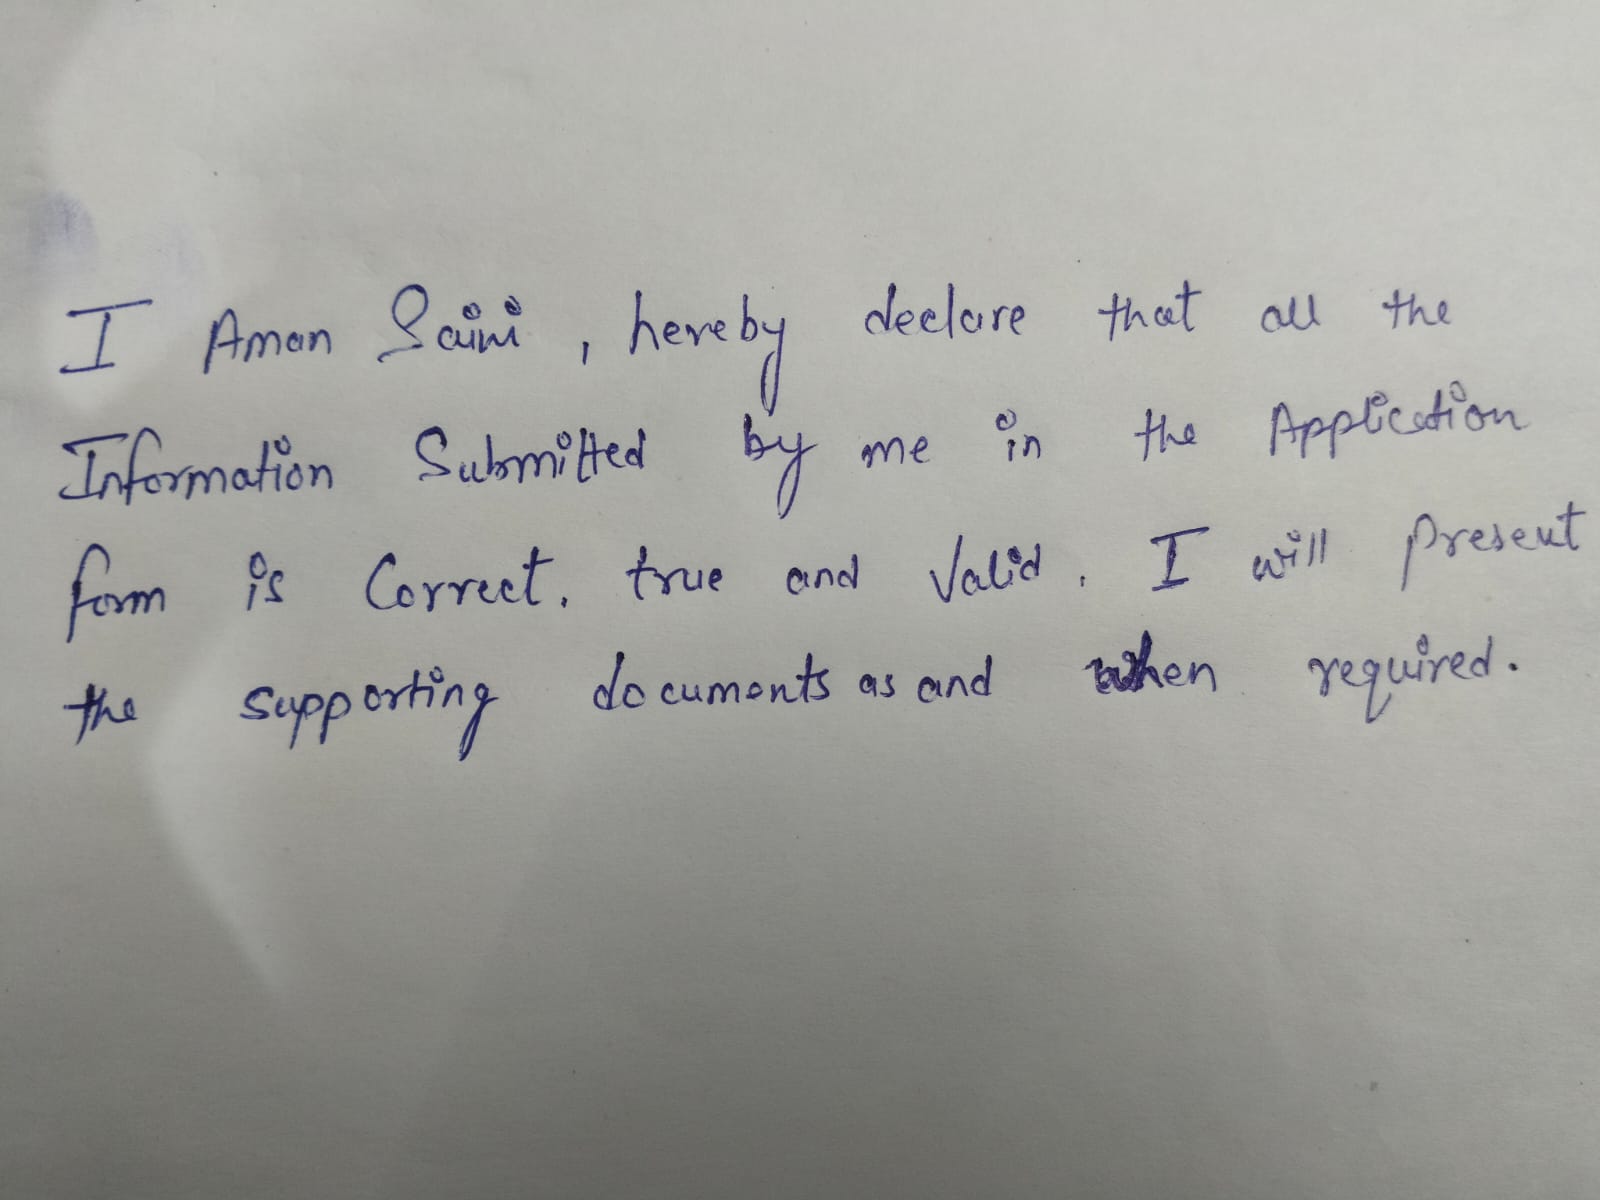 I Aman Saini, hereby declare that all the
Information Submitted by me in the Application
form is Correct. true and Valid. I will present
the supporting documents as and when required.